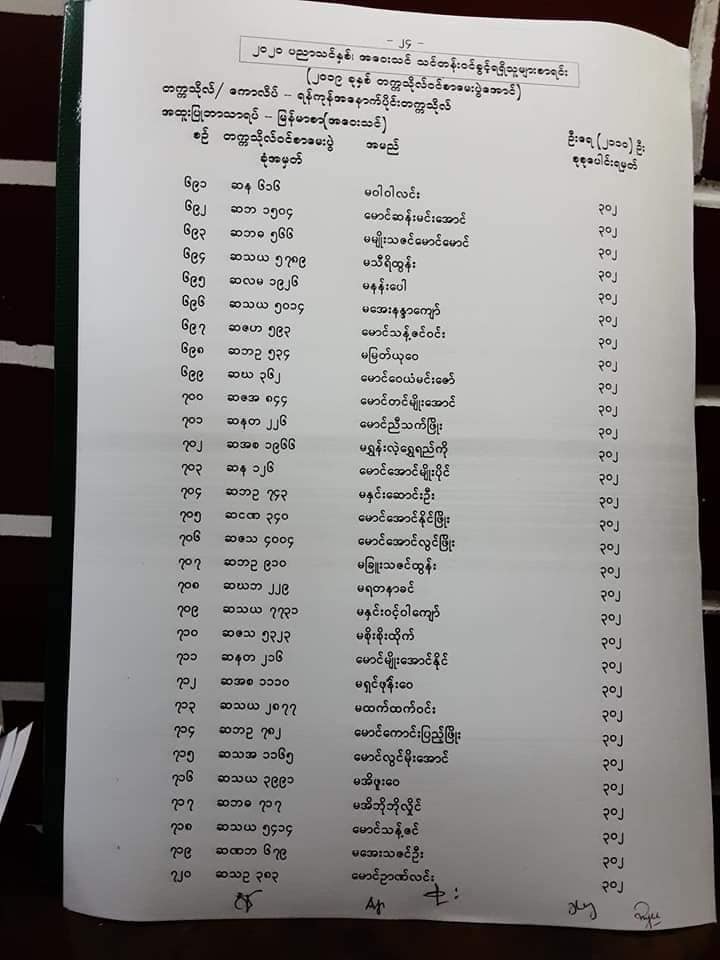 - ၂၄ -
၂၀၂၀ ပညာသင်နှစ်၊ အဝေးသင် သင်တန်းဝင်ခွင့်ရရှိသူများစာရင်း
(၂၀၁၉ ခုနှစ် တက္ကသိုလ်ဝင်စာမေးပွဲအောင်)
တက္ကသိုလ်/ ကောလိပ် - ရန်ကုန်အနောက်ပိုင်းတက္ကသိုလ်
အထူးပြုဘာသာရပ် - မြန်မာစာ(အဝေးသင်)
ဦးရေ (၂၁၁၀) ဦး
စဉ် တက္ကသိုလ်ဝင်စာမေးပွဲ ခုံအမှတ် အမည် စုစုပေါင်းရမှတ်
၆၉၁ ဆန ၆၁၆ မဝါဝါလင်း ၃၀၂
၆၉၂ ဆဘ ၁၅၀၄ မောင်ဆန်းမင်းအောင် ၃၀၂
၆၉၃ ဆဘဓ ၅၆၆ မမျိုးသဇင်မောင်မောင် ၃၀၂
၆၉၄ ဆသယ ၅၇၈၉ မသီရိထွန်း ၃၀၂
၆၉၅ ဆလမ ၁၉၂၆ မနန်းပေါ ၃၀၂
၆၉၆ ဆသယ ၅၀၁၄ မအေးနန္ဒာကျော် ၃၀၂
၆၉၇ ဆဇဟ ၅၉၃ မောင်သန့်ဇင်ဝင်း ၃၀၂
၆၉၈ ဆဘဥ ၅၃၄ မမြတ်ယုဝေ ၃၀၂
၆၉၉ ဆဃ ၃၆၂ မောင်ဝေယံမင်းဇော် ၃၀၂
၇၀၀ ဆဇအ ၈၄၄ မောင်တင်မျိုးအောင် ၃၀၂
၇၀၁ ဆနတ ၂၂၆ မောင်ညီသက်ဖြိုး ၃၀၂
၇၀၂ ဆအစ ၁၉၆၆ မရွှန်းလဲ့ရွှေရည်ကို ၃၀၂
၇၀၃ ဆန ၁၂၆ မောင်အောင်မျိုးပိုင် ၃၀၂
၇၀၄ ဆဘဥ ၇၄၃ မနှင်းဆောင်းဦး ၃၀၂
၇၀၅ ဆငဏ ၃၄၀ မောင်အောင်နိုင်ဖြိုး ၃၀၂
၇၀၆ ဆဇသ ၄၀၀၄ မောင်အောင်လွင်ဖြိုး ၃၀၂
၇၀၇ ဆဘဥ ၉၁၀ မခြူးသဇင်ထွန်း ၃၀၂
၇၀၈ ဆဃဘ ၂၂၉ မရတနာခင် ၃၀၂
၇၀၉ ဆသယ ၇၇၃၁ မနှင်းဝင့်ဝါကျော် ၃၀၂
၇၁၀ ဆဇသ ၅၃၂၃ မစိုးစိုးထိုက် ၃၀၂
၇၁၁ ဆနတ ၂၁၆ မောင်မျိုးအောင်နိုင် ၃၀၂
၇၁၂ ဆအစ ၁၁၁၀ မရှင်ဖုန်းဝေ ၃၀၂
၇၁၃ ဆသယ ၂၈၇၇ မထက်ထက်ဝင်း ၃၀၂
၇၁၄ ဆဘဥ ၇၈၂ မောင်ကောင်းပြည့်ဖြိုး ၃၀၂
၇၁၅ ဆသအ ၁၁၆၅ မောင်လွင်မိုးအောင် ၃၀၂
၇၁၆ ဆသယ ၃၉၉၁ မအိဖူးဝေ ၃၀၂
၇၁၇ ဆဘဓ ၇၁၇ မအိဘိုဘိုလှိုင် ၃၀၂
၇၁၈ ဆသယ ၅၄၁၄ မောင်သန့်ဇင် ၃၀၂
၇၁၉ ဆဏဘ ၆၇၉ မအေးသဇင်ဦး ၃၀၂
၇၂၀ ဆသဥ ၃၈၃ မောင်ဉာဏ်လင်း ၃၀၂